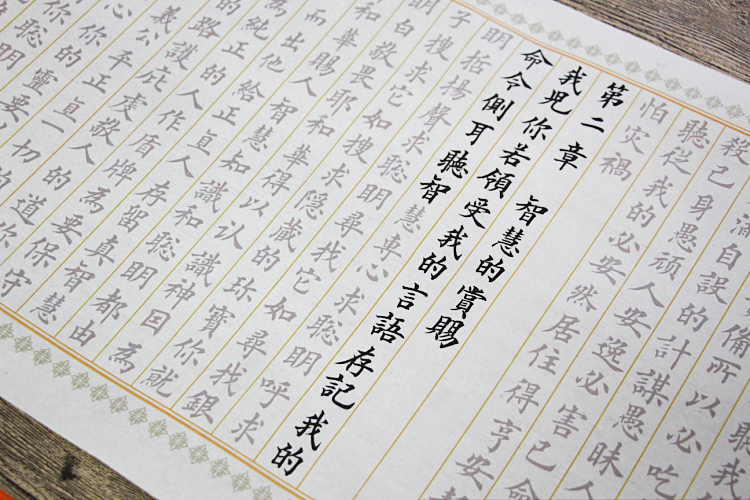 聽我
備所以必吃
自設的計謀愚昧人
殺己身愚頑人安逸必害己命
聽從我的必安然居住得享安
怕災禍
第二章 智慧的賞賜
我兒你若領受我的言語存記我的
命令側耳聽智慧專心求聰明呼求
明揚聲求聰明尋找它如尋找銀
子搜求它如搜求隱藏的珍寶你就
明白敬畏耶和華得以認識神因為
和華賜人智慧識和聰明都由
而出他給正直人存留真智慧
為純正的人作盾牌為要保守
的路護庇虔敬人的道你
義公平正直一切的